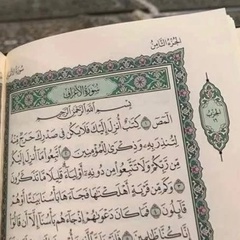 الجزء الثامن
سورة
سورة الأعراف
بِسْمِ اللَّهِ الرَّحْمَٰنِ الرَّحِيمِ
الٓمٓصٓ ١ كِتَٰبٌ أُنزِلَ إِلَيْكَ فَلَا يَكُن فِى صَدْرِكَ حَرَجٌ مِّنْهُ
لِتُنذِرَ بِهِۦ وَذِكْرَىٰ لِلْمُؤْمِنِينَ ٢ ٱتَّبِعُوا۟ مَآ أُنزِلَ إِلَيْكُم
مِّن رَّبِّكُمْ وَلَا تَتَّبِعُوا۟ مِن دُونِهِۦٓ أَوْلِيَآءَ ۗ قَلِيلًا مَّا تَذَكَّرُونَ
وَكَم مِّن قَرْيَةٍ أَهْلَكْنَٰهَا فَجَآءَهَا بَأْسُنَا بَيَٰتًا أَوْ هُمْ
قَآئِلُونَ ٤ فَمَا كَانَ دَعْوَىٰهُمْ إِذْ جَآءَهُم بَأْسُنَآ إِلَّآ أَن قَالُوٓا۟
الحزب
١٦